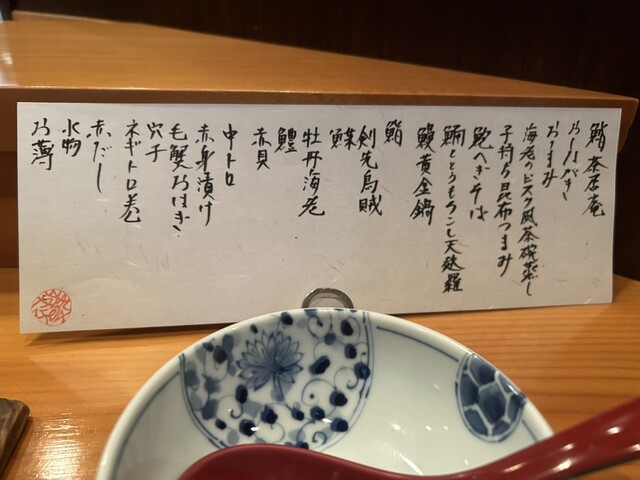 鮨 茶居庵
おしながき
おつまみ
海老のビスク風茶碗蒸し
子持ち昆布つまみ
鮑へぎそば
鰯ととうもろこし天麩羅
鰻黄金鍋
鮨
剣先烏賊
鰈
牡丹海老
鱧
赤貝
中トロ
赤身漬け
毛蟹おはぎ
穴子
ネギトロ巻
赤だし
水物
乃薄